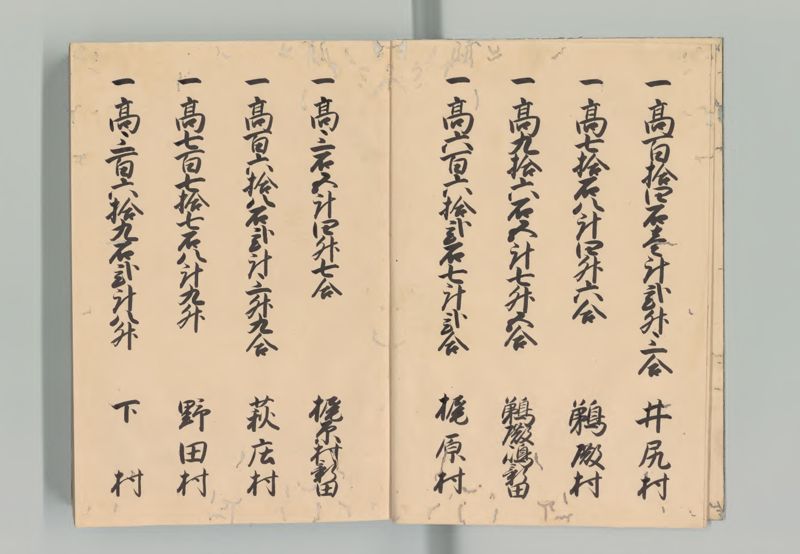 一高百拾四石壱斗弐升三合 井尻村
一高七拾石八斗四升六合 鵜殿村
一高九拾六石五斗七升五合 鵜殿嶋新田
一高六百六拾弐石七斗弐合 梶原村
一高三石五斗四升七合 梶原村新田
一高百六拾八石弐斗三升九合 萩庄村
一高七百七拾七石八斗九升 野田村
一高三百六拾九石弐斗八升 下村